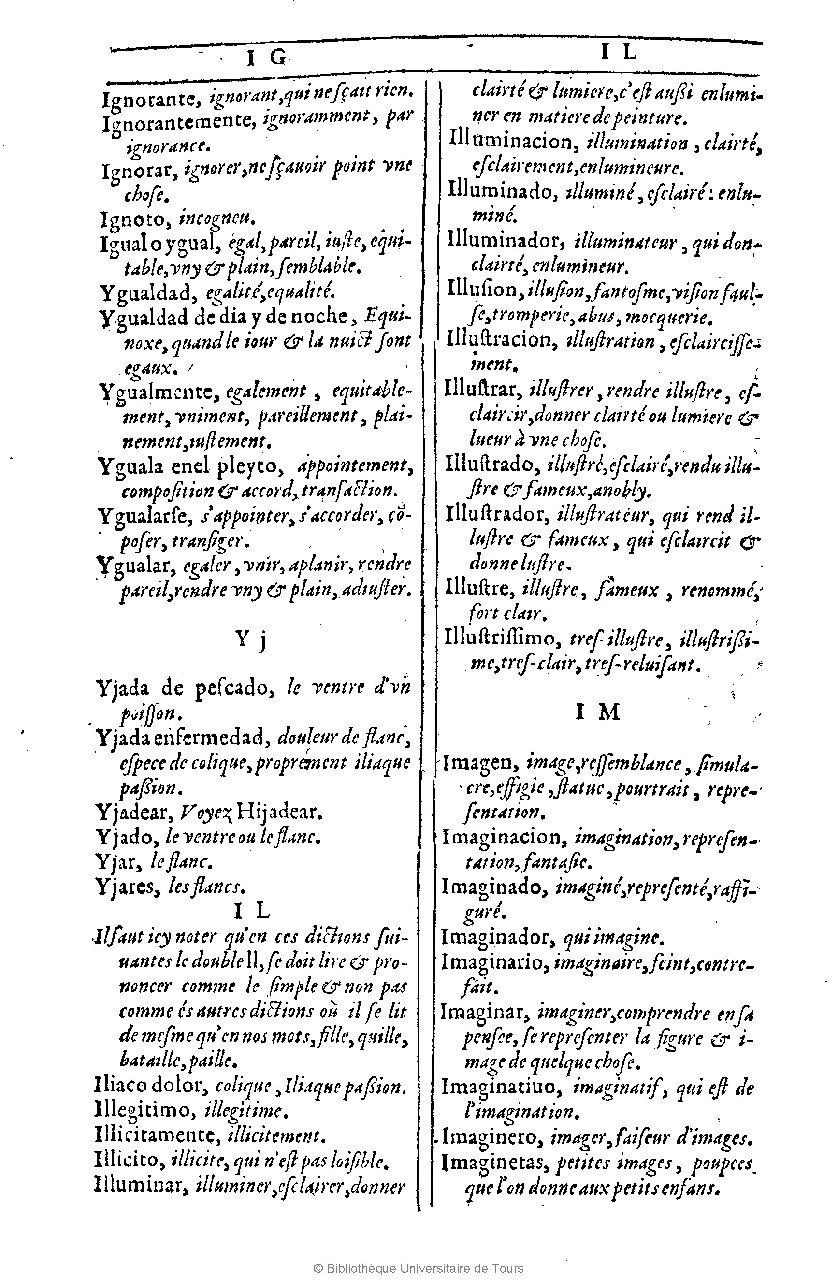 I G
Ignorante, ignorant, qui ne sçait rien.
Ignorantemente, ignoramment, par
ignorance.
Ignorar, ignorer, ne sçauoir point vne
chose.
Ignoto, incogneu.
Igual o ygual, egal, pareil, iuste, equi-
table, vny & plain, semblable.
Ygualdad, egalité, equalité.
Ygualdad de dia y de noche, Equi-
noxe, quand le iour & la nuict sont
egaux.
Ygualmente, egalement, equitable-
ment, vniment, pareillement, plai-
nement, iustement.
Yguala enel pleyto, appointement,
composition & accord, transaction.
Ygualarse, s'appointer, s'accorder, cõ-
poser, transiger.
Ygualar, egaler, vnir, aplanir, rendre
pareil, rendre vny & plain, adiuster.
Y j
Yjada de pescado, le ventre d'vn
poisson.
Yjada enfermedad, douleur de flanc,
espece de colique, proprement iliaque
passion.
Yjadear, Voyez Hijadear.
Yjado, le ventre ou le flanc.
Yjar, le flanc.
Yjares, les flancs.
I L
Il faut icy noter qu'en ces dictions sui-
uantes le double ll, se doit lire & pro-
noncer comme le simple & non pas
comme és autres dictions où il se lit
de mesme qu'en nos mots, fille, quille,
bataille, paille.
Iliaco dolor, colique, Iliaque passion.
Illegitimo, illegitime.
Illicitamente, illicitement.
Illicito, illicite, qui n'est pas loisible.
Illuminar, illuminer, esclairer, donner
I L
clairté & lumiere, c'est aussi enlumi-
ner en matiere de peinture.
Illuminacion, illumination, clairté,
esclairement, enlumineure.
Illuminado, illuminé, esclairé: enlu-
miné.
Illuminador, illuminateur, qui don-
clairté, enlumineur.
Illusion, illusion, fantosme, vision faul-
se, tromperie, abus, mocquerie.
Illustracion, illustration, esclaircisse-
ment.
Illustrar, illustrer, rendre illustre, es-
claircir, donner clairté ou lumiere &
lueur à vne chose.
Illustrado, illustré, esclairé, rendu illu-
stre & fameux, anobly.
Illustrador, illustrateur, qui rend il-
lustre & fameux, qui esclaircit &
donne lustre.
Illustre, illustre, fameux, renommé,
fort clair.
Illustrissimo, tres-illustre, illustrissi-
me, tres-clair, tres-reluisant.
I M
Imagen, image, ressemblance, simula-
cre, effigie, statue, pourtrait, repre-
sentation.
Imaginacion, imagination, represen-
tation, fantasie.
Imaginado, imaginé, representé, raffi-
guré.
Imaginador, qui imagine.
Imaginario, imaginaire, feint, contre-
fait.
Imaginar, imaginer, comprendre en sa
pensee, se representer la figure & i-
mage de quelque chose.
Imaginatiuo, imaginatif, qui est de
l'imagination.
Imaginero, imager, faiseur d'images.
Imaginetas, petites images, poupees
que l'on donne aux petits enfans.
© Bibliothèque Universitaire de Tours